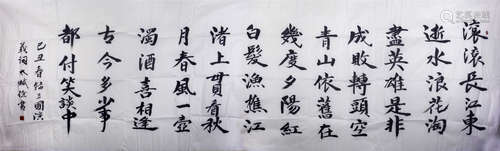 滚滚長江東
逝水浪花淘
盡英雄是非
成敗轉頭空
青山依舊在
幾度夕陽紅
白髮漁樵江
渚上貫看秋
月春風一壺
濁酒喜相逢
古今多少事
都付笑談中
己丑春 三國演
義詞 書